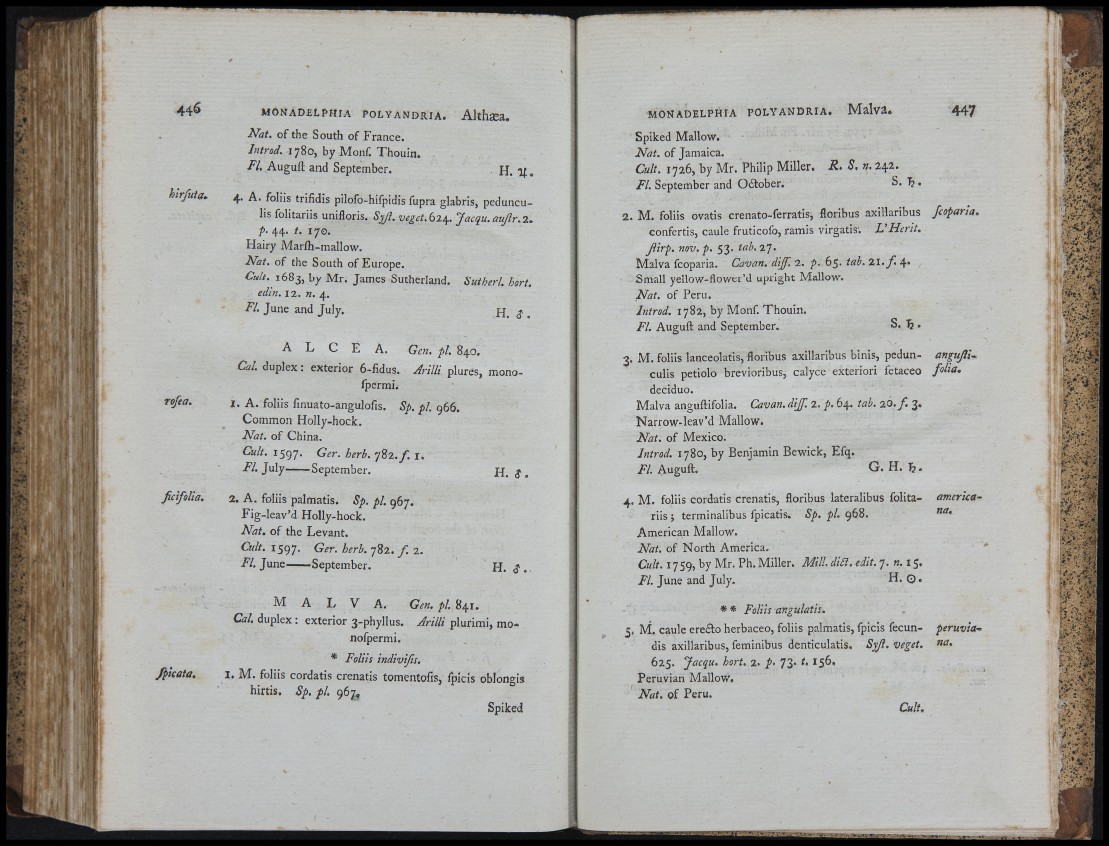 446 MONADELPHIA POLYANDRIA. Althæa.
Nat. of the South of France.
Introd. 1780, by Monſ. Thouin.
Fl. Auguſt and September. H. ♃.
hirſuta. 4. A. foliis trifidis piloſo-hiſpidis ſupra glabris, peduncu-
lis ſolitariis unifloris. Syſt. veget. 624. Jacqu. auſtr. 2.
p. 44. t. 170.
Hairy Marſh-mallow.
Nat. of the South of Europe.
Cult. 1683, by Mr. James Sutherland. Sutherl. hort.
edin. 12. n. 4.
Fl. June and July. H. ♂.
ALCEA. Gen. pl. 840.
Cal. duplex: exterior 6-fidus. Arilli plures, mono-
ſpermi.
roſea. 1. A. foliis ſinuato-anguloſis. Sp. pl. 966.
Common Holly-hock.
Nat. of China.
Cult. 1597. Ger. herb. 782. f. 1.
Fl. July——September. H. ♂.
ficifolia. 2. A. foliis palmatis. Sp. pl. 967.
Fig-leav'd Holly-hock.
Nat. of the Levant.
Cult. 1597. Ger. herb. 782. f. 2.
Fl. June——September. H. ♂.
MALVA. Gen. pl. 841.
Cal. duplex: exterior 3-phyllus. Arilli plurimi, mo-
noſpermi.
* Foliis indiviſis.
ſpicata. 1. M. foliis cordatis crenatis tomentoſis, ſpicis oblongis
hirtis. Sp. pl. 967.
Spiked
MONADELPHIA POLYANDRIA. Malva. 447
Spiked Mallow.
Nat. of Jamaica.
Cult. 1726, by Mr. Philip Miller. R. S. n. 242.
Fl. September and October. S. ♄.
2. M. foliis ovatis crenato-ſerratis, floribus axillaribus ſcoparia.
confertis, caule fruticoſo, ramis virgatis. L'Herit.
ſtirp. nov. p. 53. tab. 27.
Malva ſcoparia. Cavan. diſſ. 2. p. 65. tab. 21. f. 4.
Small yellow-flower'd upright Mallow.
Nat. of Peru.
Introd. 1782, by Monſ. Thouin.
Fl. Auguſt and September. S. ♄.
3. M. foliis lanceolatis, floribus axillaribus binis, pedun- anguſti-
culis petiolo brevioribus, calyce exteriori ſetaceo folia.
deciduo.
Malva anguſtifolia. Cavan. diſſ. 2. p. 64. tab. 20. f. 3.
Narrow-leav'd Mallow.
Nat. of Mexico.
Introd. 1780, by Benjamin Bewick, Eſq.
Fl. Auguſt. G. H. ♄.
4. M. foliis cordatis crenatis, floribus lateralibus ſolita- america-
riis; terminalibus ſpicatis. Sp. pl. 968. na.
American Mallow.
Nat. of North America.
Cult. 1759, by Mr. Ph. Miller. Mill. dict. edit. 7. n. 15.
Fl. June and July. H. ☉.
** Foliis angulatis.
5. M. caule erecto herbaceo, foliis palmatis, ſpicis ſecun- peruvia-
dis axillaribus, ſeminibus denticulatis. Syſt. veget. na.
625. Jacqu. hort. 2. p. 73. t. 156.
Peruvian Mallow.
Nat. of Peru.
Cult.